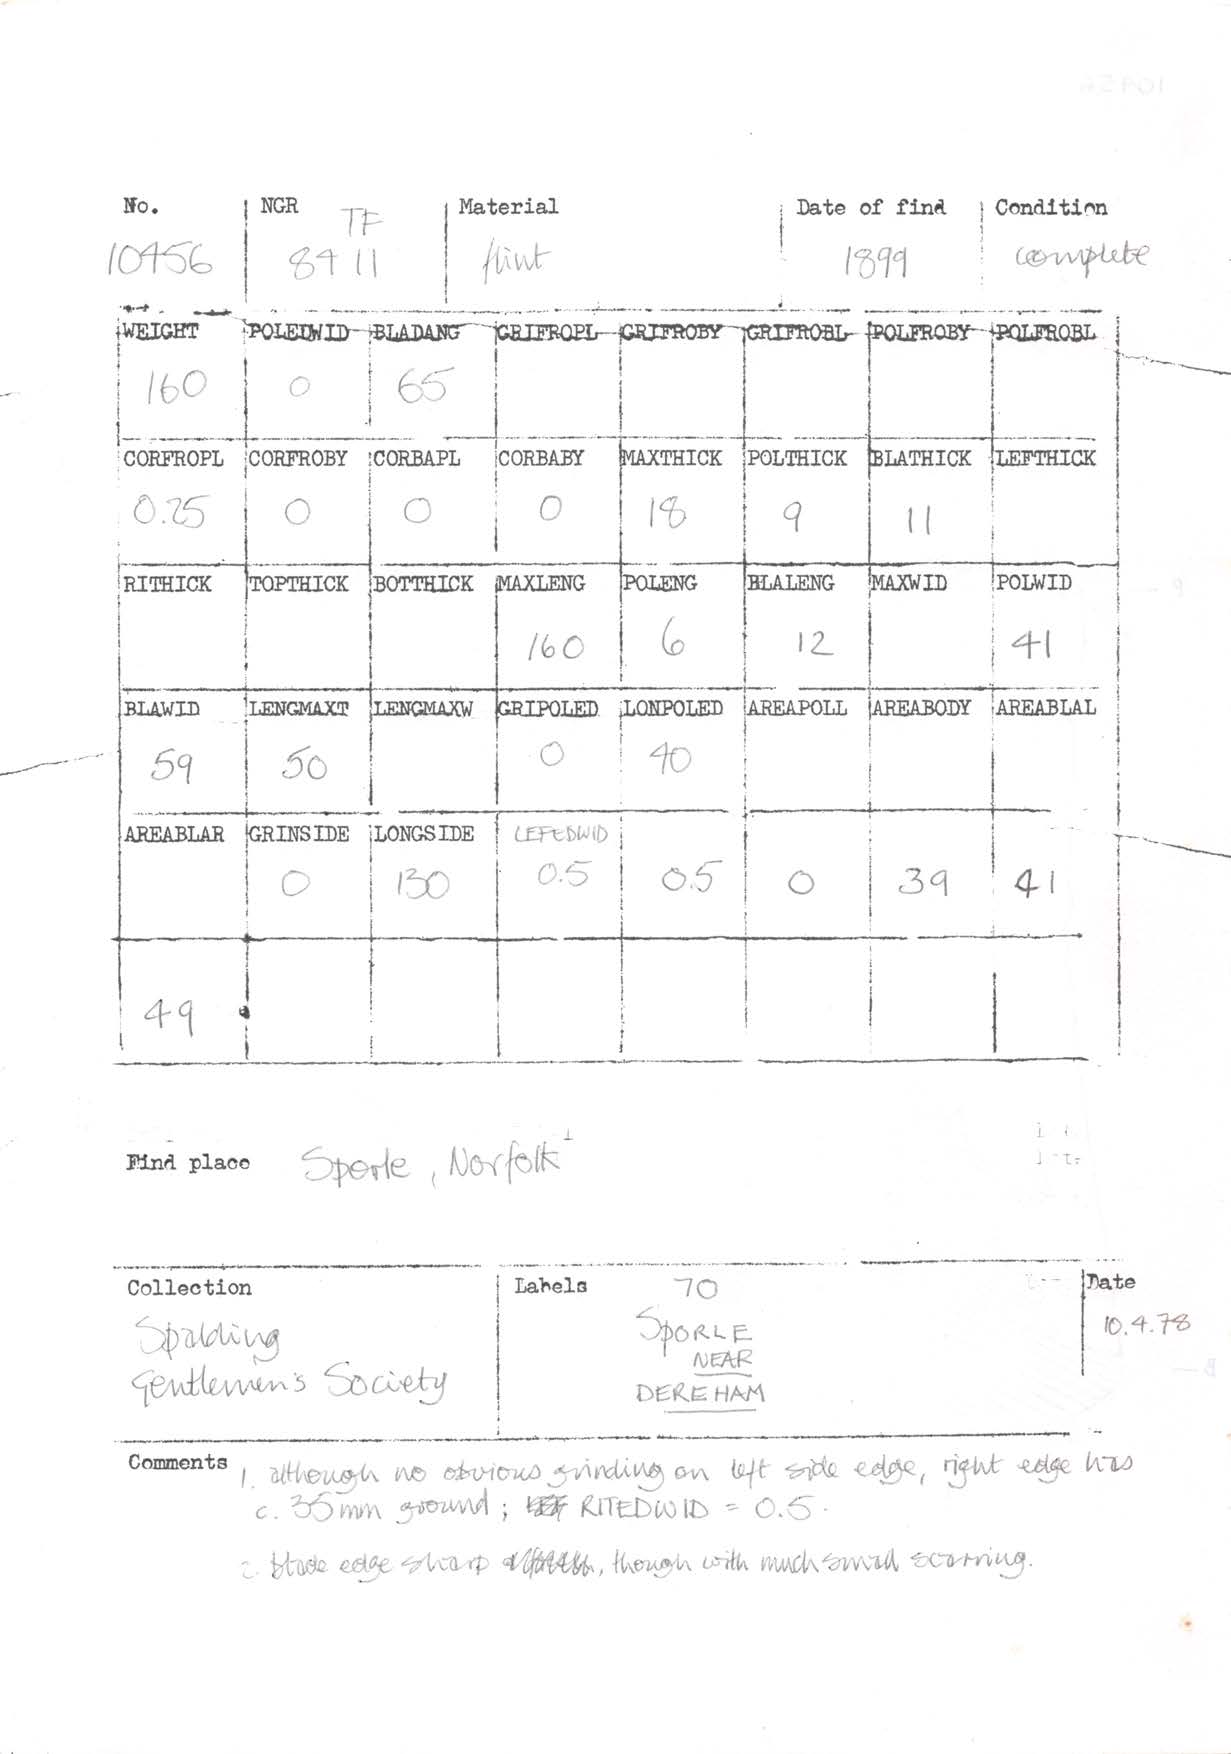 No. NGR Material Date of find Condition
TF
10456 84 11 flint 1899 complete
WEIGHT POLEDWID BLADANG GRIFROPL GRIFROBY GRIFROBL POLFROBY POLFROBL
160 0 65
CORFROPL CORFROBY CORBAPL CORBABY MAXTHICK POLTHICK BLATHICK LEFTHICK
0.25 0 0 0 18 9 11
RITHICK TOPTHICK BOTTHICK MAXLENG POLENG BLALENG MAXWID POLWID
160 6 12 41
BLAWID LENGMAXT LENGMAXW GRIPOLED LONPOLED AREAPOLL AREABODY AREABLAL
59 50 0 40
AREABLAR GRINSIDE LONGSIDE LEFEDWID
0 130 0.5 0.5 0 39 41
49
Find place Sporle, Norfolk
Collection Labels 70 Date
Spalding SPORLE 10.4.78
NEAR
Gentlemen's Society DEREHAM
Comments 1. although no obvious grinding on left side edge, right edge has
c. 35mm ground; RITEDWID = 0.5.
2. blade edge sharp, though with much small scarring.